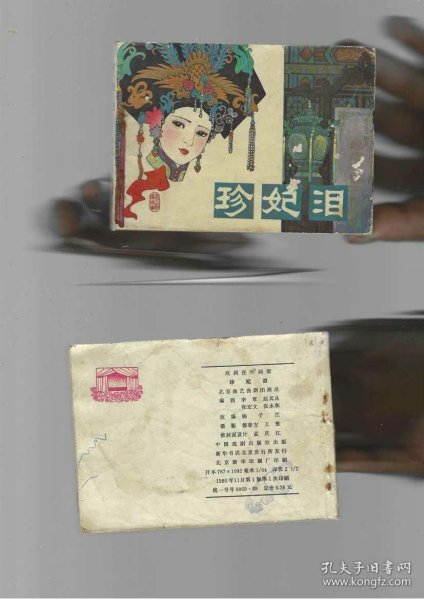 珍妃泪
戏剧连环画册
珍妃泪
北京曲艺曲剧团演出
编剧
改编 杨子江
摄影
封面设计 孟庆江
中国戏剧出版社出版
新华书店北京发行所发行
北京新华印刷厂印刷
开本787×1092毫米1/64 印张2 1/3
1980年11月第1版第1次印刷
统一书号8069·88 定价0.26元
孔夫子旧书网
www.kongfz.com